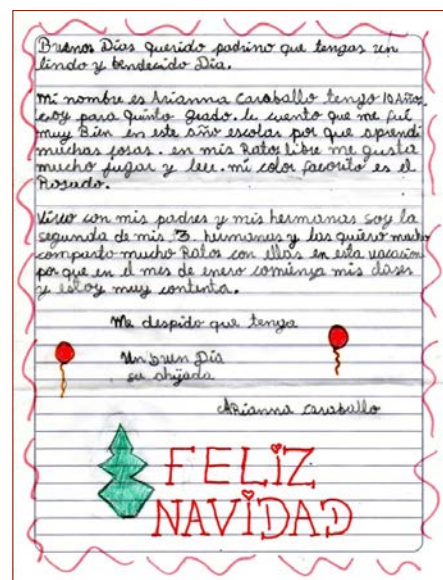 Buenos Dias querido padrino que tengas un
lindo y bendecido Dia.
mi nombre es Arianna Caraballo tengo 10 Años
voy para quinto grado. le cuento que me fui
muy Bien en este año escolar por que aprendi
muchas cosas. en mis Ratos libre me gusta
mucho jugar y leer. mi color favorito es el
Rosado.
Vivo con mis padres y mis hermanas soy la
segunda de mis 3 hermanas y las quiero mucho
comparto mucho Ratos con ellas en esta vacacion
por que en el mes de enero comienza mis clases
y estoy muy contenta.
Me despido que tenga
Un buen Dia
su ahijada
Arianna caraballo
FELIZ
NAVIDAD